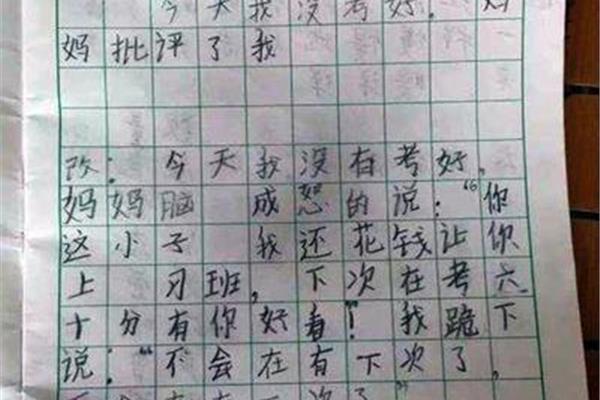 今天我没考好。妈
妈批评了我
改：今天我没有考好，
妈妈脑 成怒的说：“你
这小子 我还花钱让你
上 习班，下次在考六
十分有你好看！我跪下
说：“不会在有下次了，